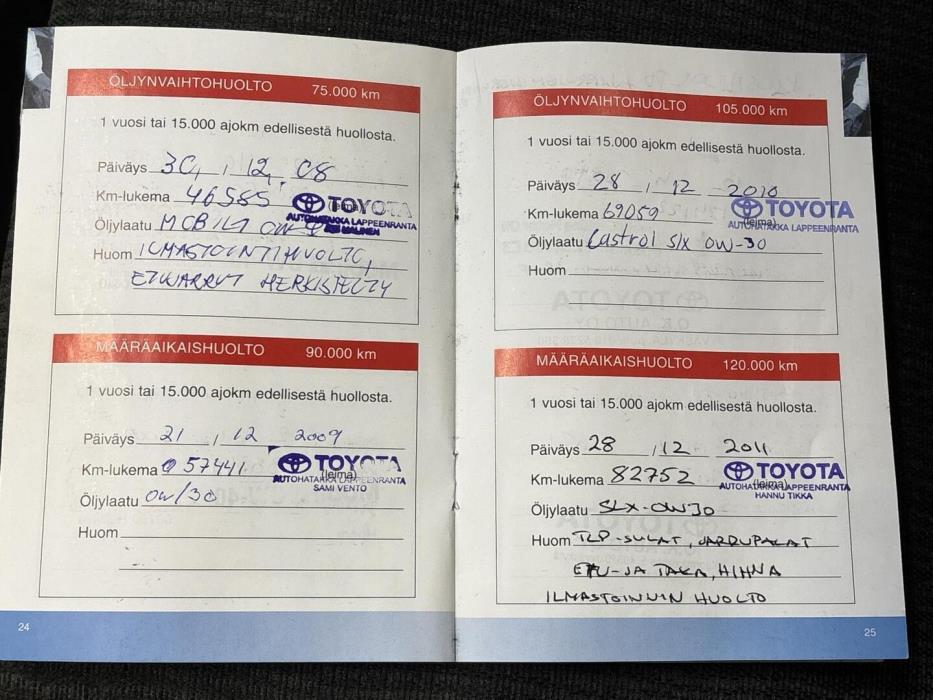 ÖLJYNVAIHTOHUOLTO 75.000 km
1 vuosi tai 15.000 ajokm edellisestä huollosta.
Päiväys 30, 12, 08
Km-lukema 46585
TOYOTA
(leima)
AUTOHATAKKA LAPPEENRANTA
Öljylaatu MOBIL1 0W
Huom ILMASTOINTIHUOLTO,
ETUVARRUT HERKISTELTY
MÄÄRÄAIKAISHUOLTO 90.000 km
1 vuosi tai 15.000 ajokm edellisestä huollosta.
Päiväys 21 / 12 2009
Km-lukema 57441
TOYOTA
(leima)
AUTOHATAKKA LAPPEENRANTA
SAMI VENTO
Öljylaatu 0W/30
Huom
24
ÖLJYNVAIHTOHUOLTO 105.000 km
1 vuosi tai 15.000 ajokm edellisestä huollosta.
Päiväys 28 / 12 2010
Km-lukema 69059
TOYOTA
(leima)
AUTOHATAKKA LAPPEENRANTA
Öljylaatu Castrol slx 0W-30
Huom
MÄÄRÄAIKAISHUOLTO 120.000 km
1 vuosi tai 15.000 ajokm edellisestä huollosta.
Päiväys 28 / 12 2011
Km-lukema 82752
TOYOTA
(leima)
AUTOHATAKKA LAPPEENRANTA
HANNU TIKKA
Öljylaatu SLX-0W30
Huom TLP-SULAT, JARRUPALAT
ETU-JA TAKA, HIHNA
ILMASTOINNIN HUOLTO
25